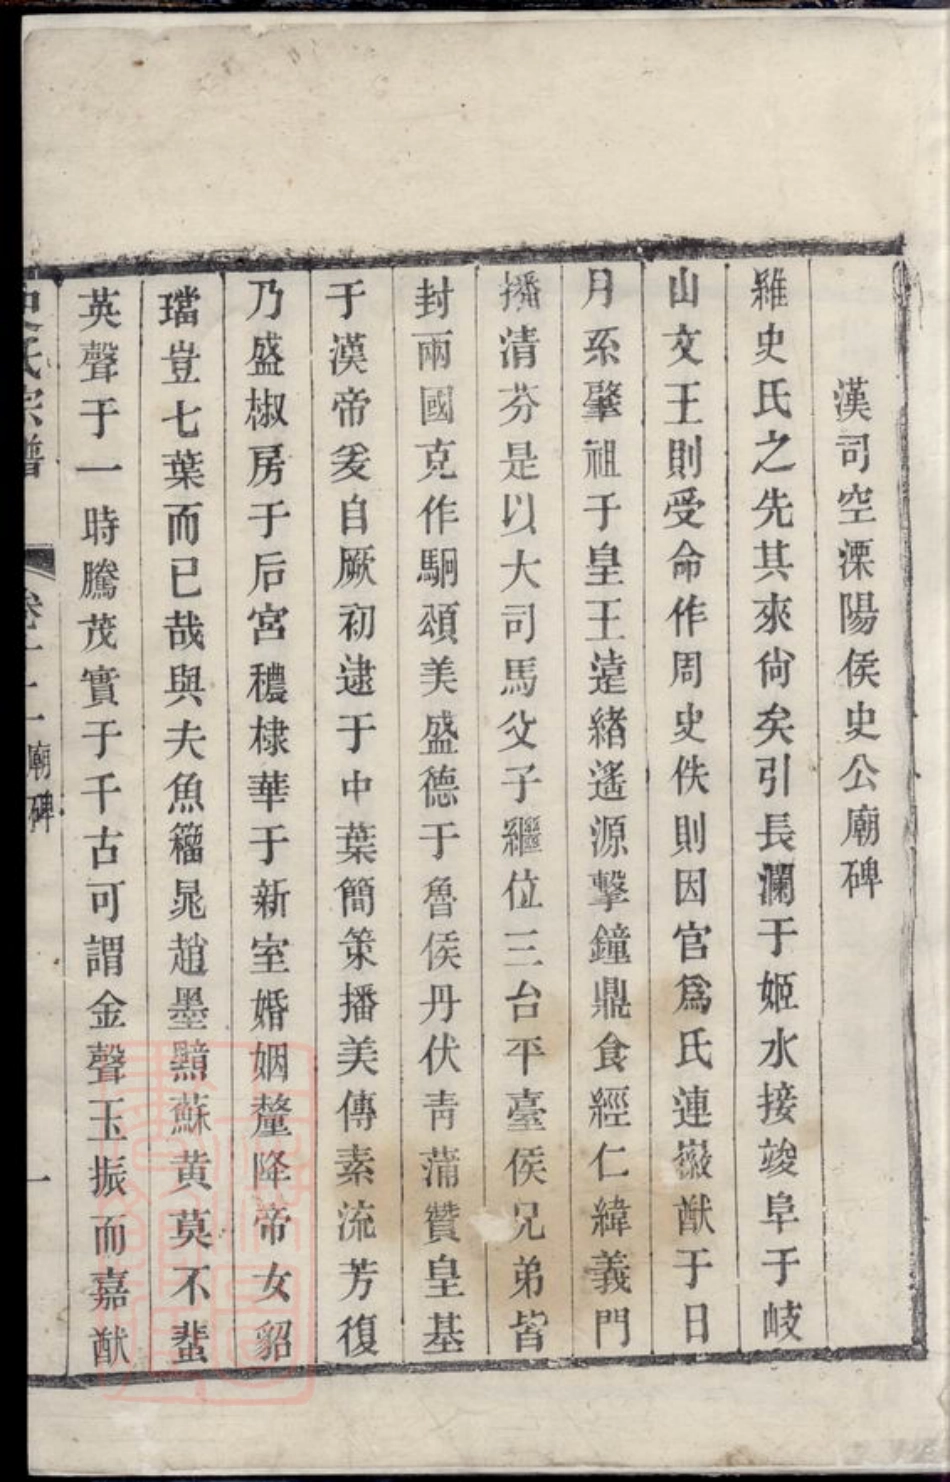 漢司空溧陽侯史公廟碑
雖史氏之先其來尙矣引長瀾于姬水接竣阜于岐
山文王則受命作周史佚則因官爲氏連嶽猷于日
月系肇祖于皇王遠緒遙源擊鐘鼎食經仁緯義門
播清芬是以大司馬父子繼位三台平臺侯兄弟皆
封兩國克作駉頌美盛德于魯侯丹伏青蒲贊皇基
于漢帝爰自厥初逮于中葉簡策播美傳素流芳復
乃盛椒房于后宮穠棣華于新室婚姻釐降帝女貂
璫豈七葉而已哉與夫魚籀晁趙墨黯蘇黄莫不蜚
英聲于一時騰茂實于千古可謂金聲玉振而嘉猷
史氏宗譜 卷十二 廟碑 一